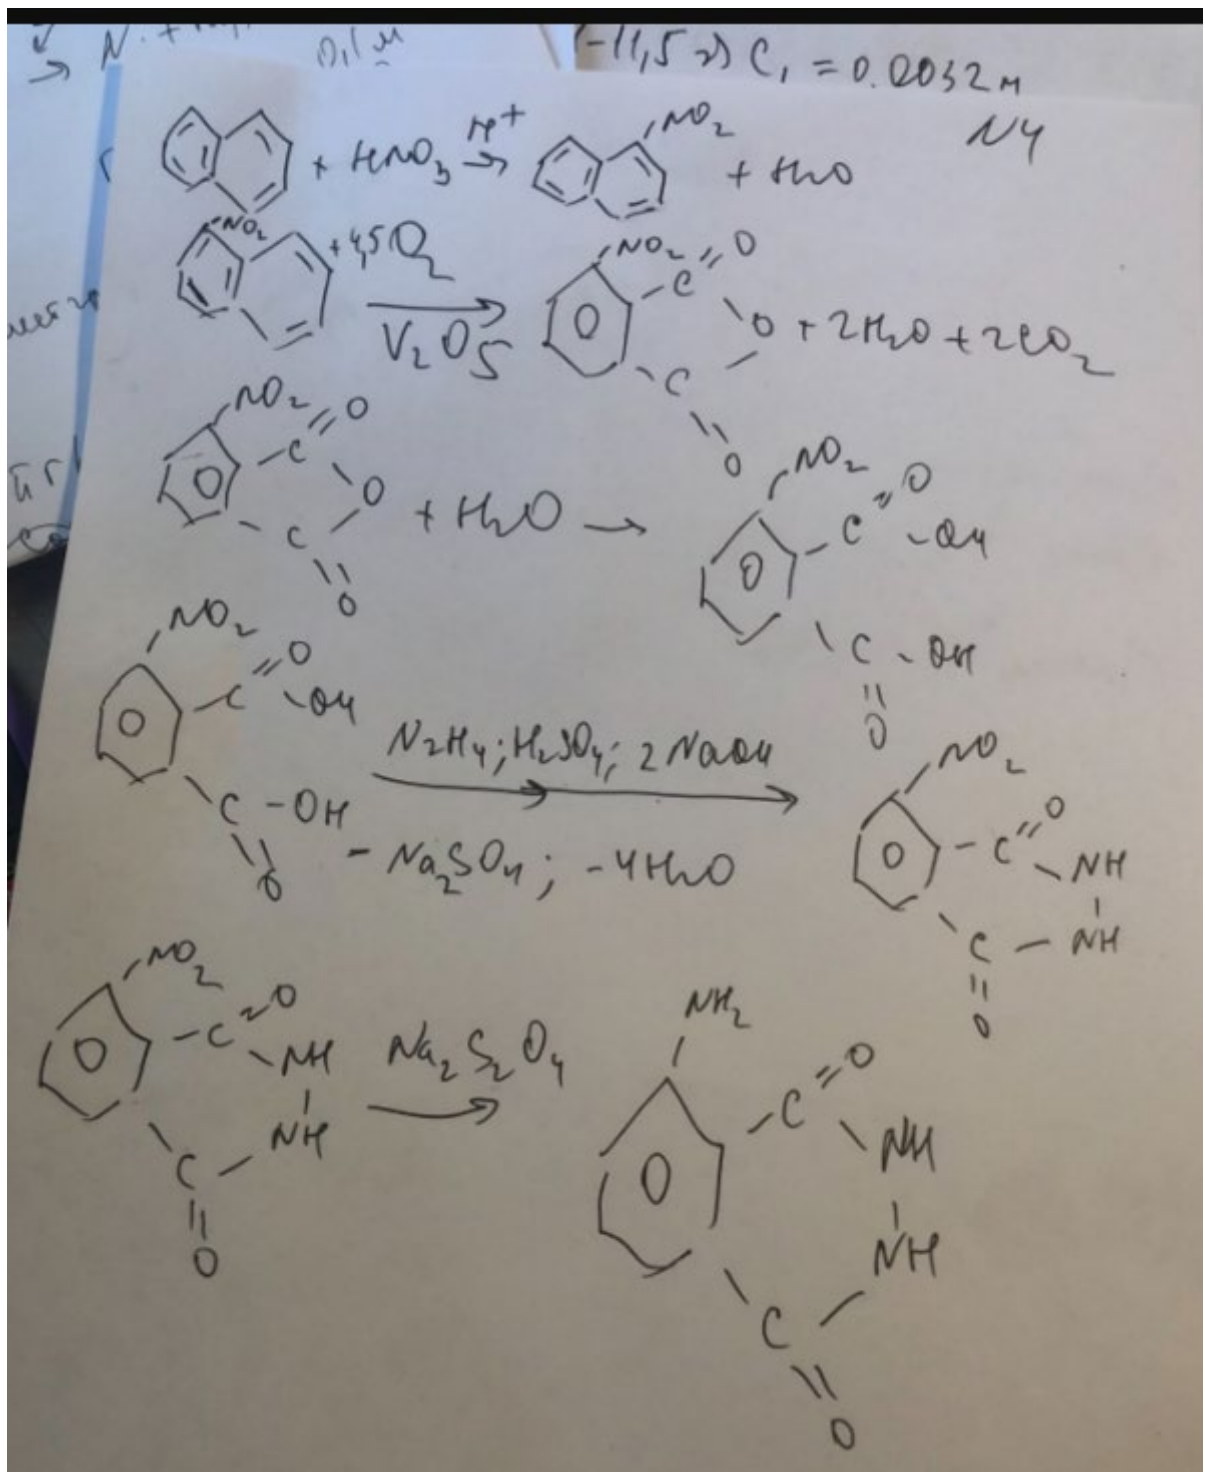 0,1 м
(-11,5 г) C₁ = 0.0032 м
N4
+ HNO₃ H⁺ → NO₂ + H₂O
NO₂ + 4,5O₂ → V₂O₅ NO₂ C=O O C=O + 2H₂O + 2CO₂
NO₂ C=O O C=O + H₂O → NO₂ C=O -OH C-OH =O
NO₂ C=O -OH C-OH =O N₂H₄; H₂SO₄; 2NaOH → - Na₂SO₄; -4H₂O NO₂ C=O NH NH C=O
NO₂ C=O NH NH C=O Na₂S₂O₄ → NH₂ C=O NH NH C=O